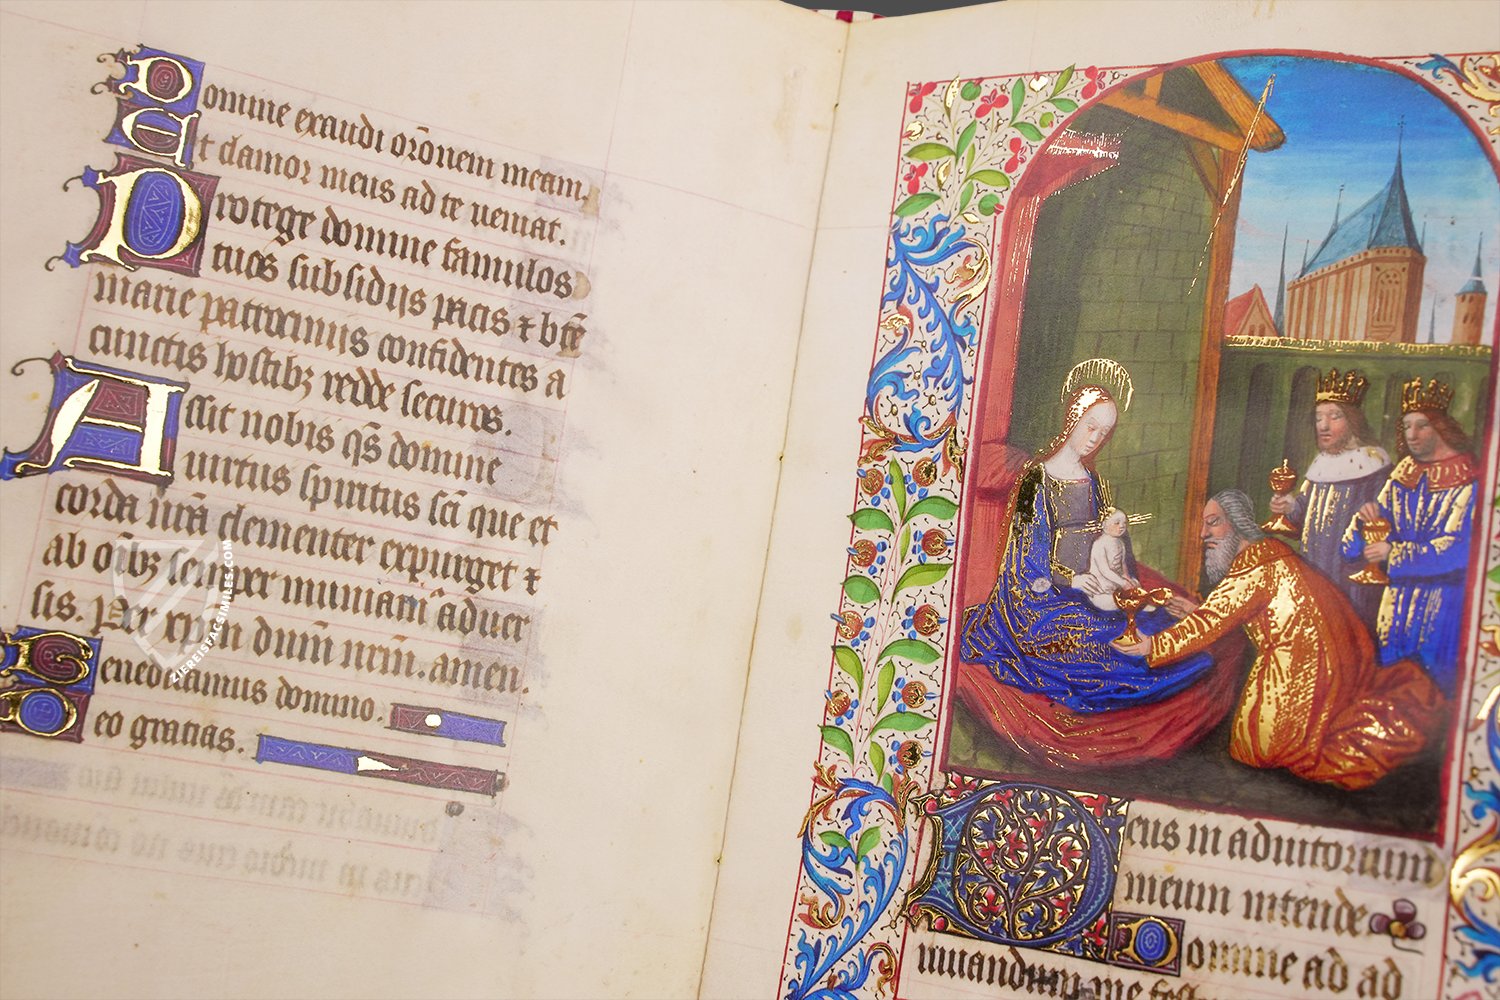 Domine exaudi orōnem meam.
Et clamor meus ad te veniat.
Protege domine famulos
tuos subsidijs pacis ⁊ btē
marie patrocinijs confidentes a
cunctis hostibꝫ redde securos.
Assit nobis qs̄ domine
virtus spiritus sc̄i que et
corda nr̄a clementer expurget ⁊
ab oībꝫ semper muniat aduer
sis. Per xpm dnm̄ nrm̄. amen.
Benedicamus domino.
Deo gratias.
ZIEREISFACSIMILES.COM
Deus in adiutorium
meum intende
Domine ad ad
iuuandum me